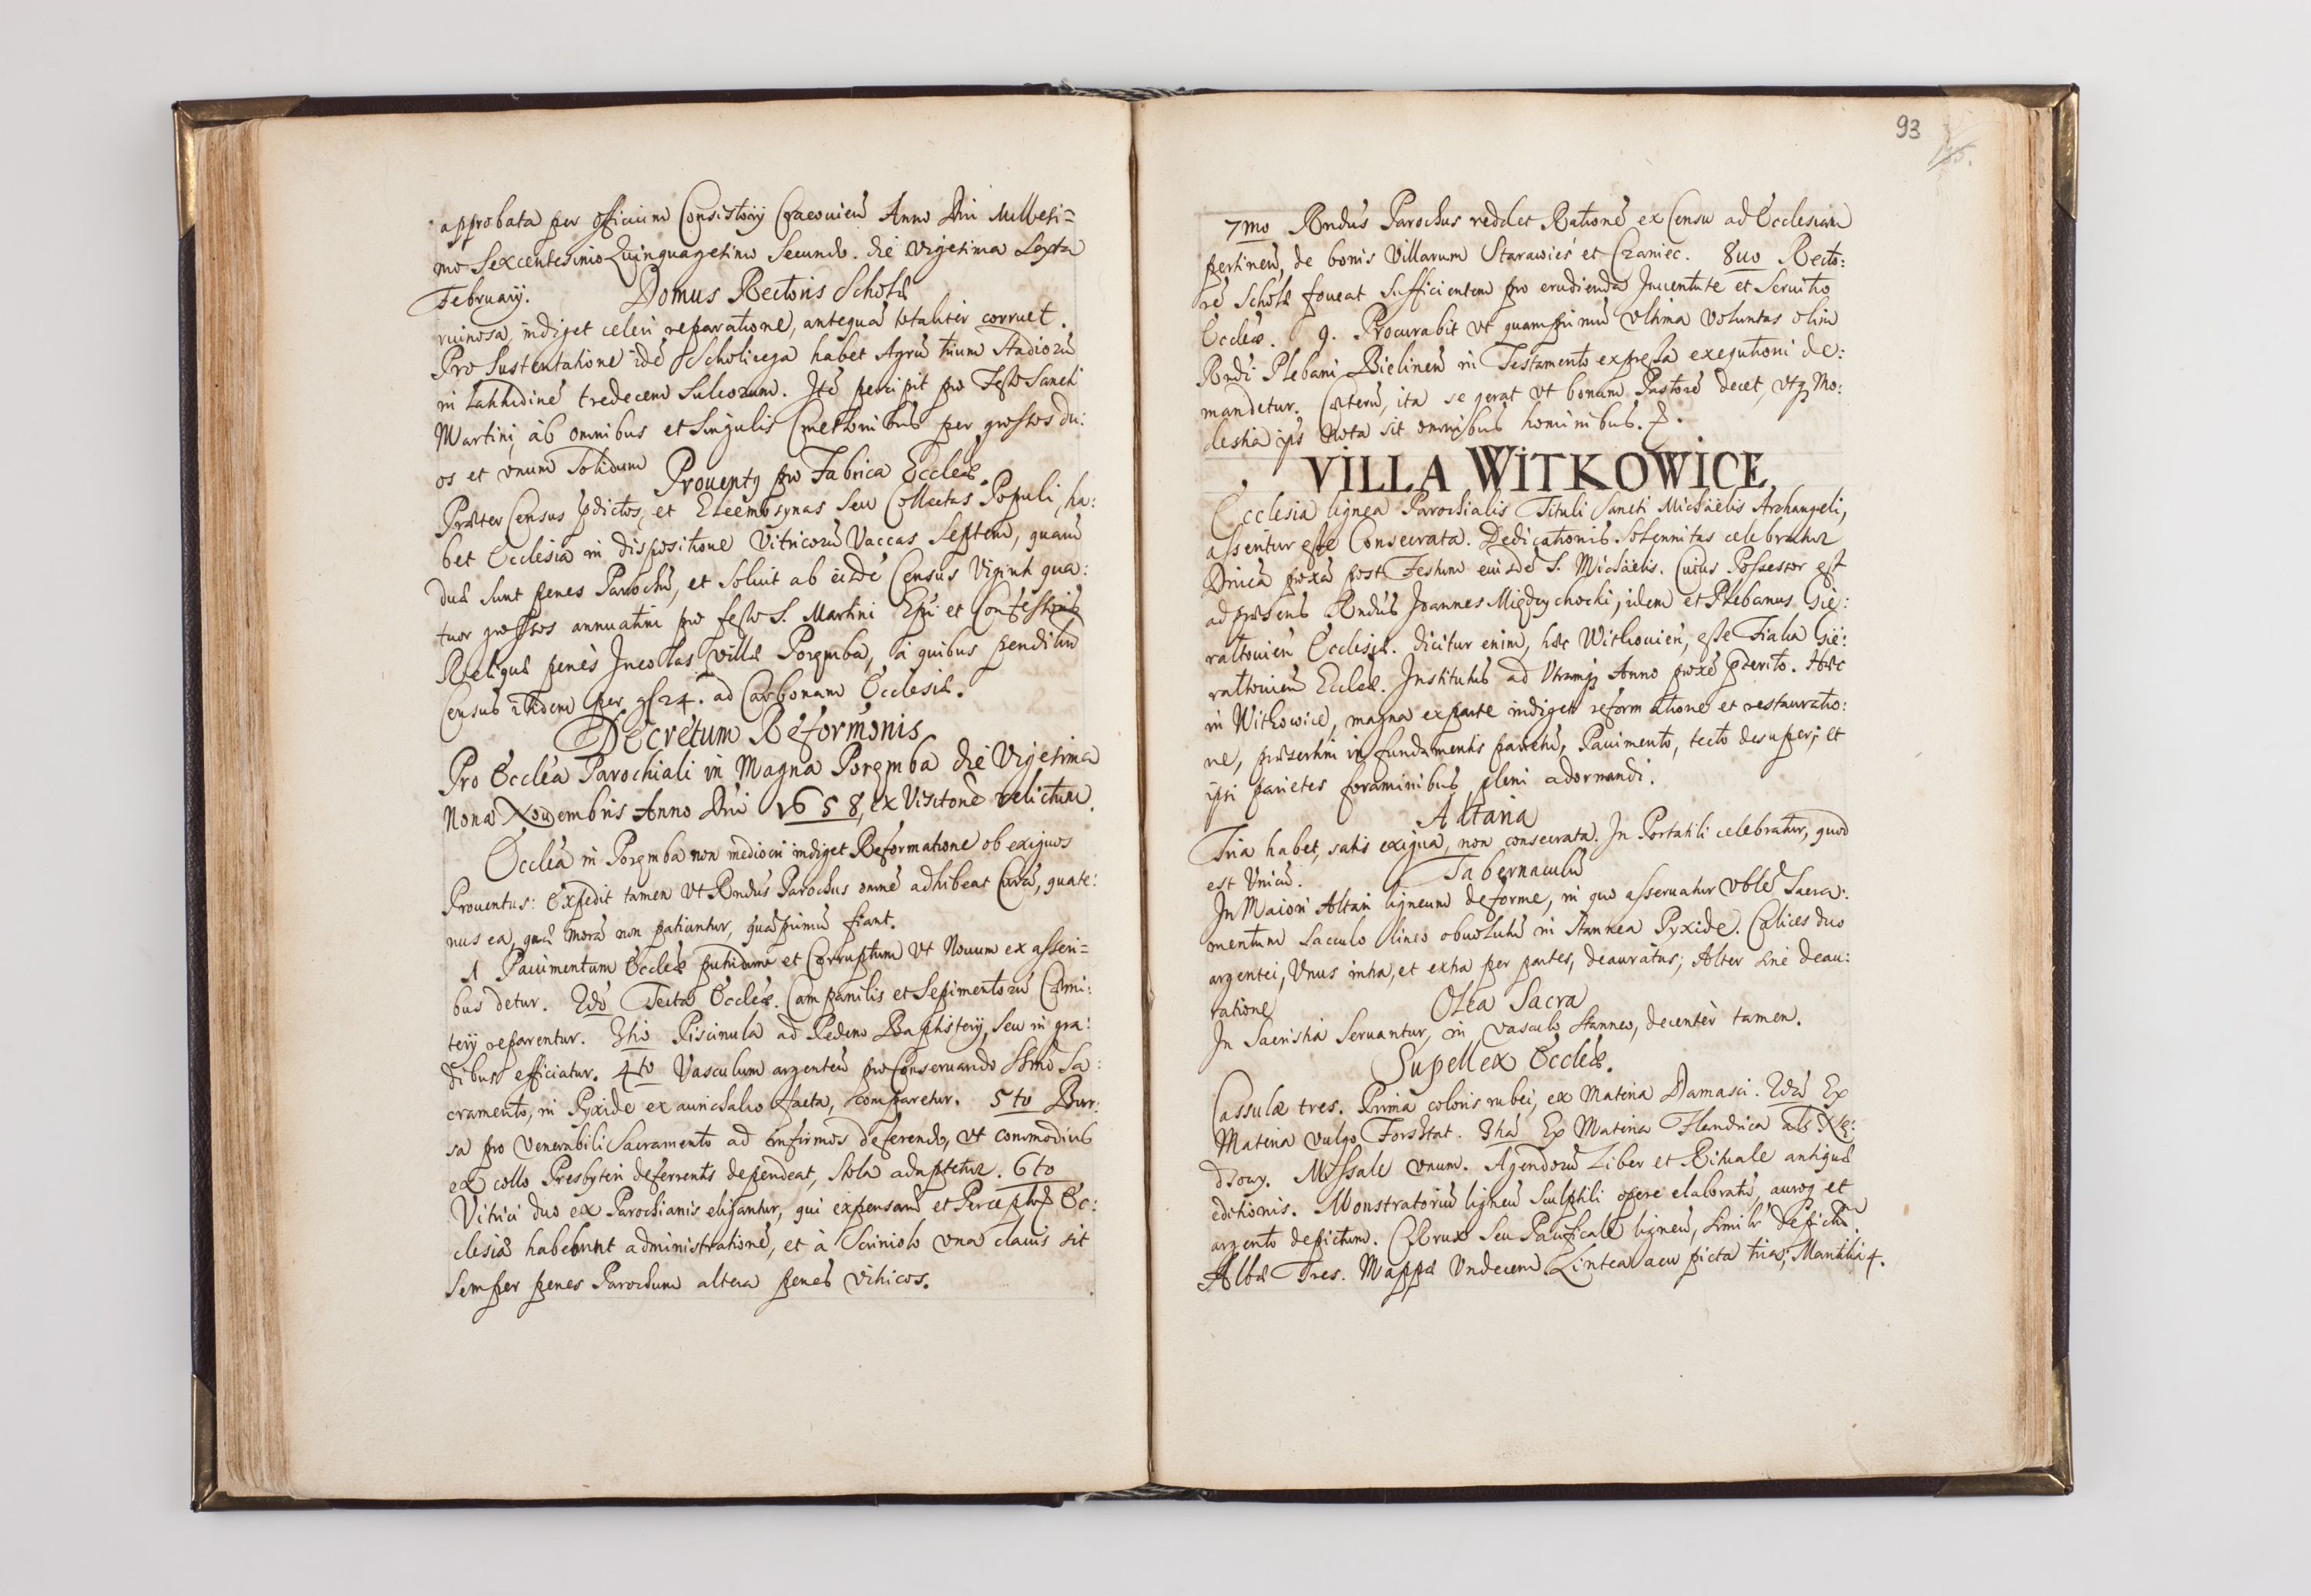 approbata per officium Consistorÿ Cracouien̄ Anno Dni Millesi=
mo Sexcentesimo Quinquagesimo Secundo. die vigesima Sexta
Februarÿ. Domus Rectoris Scholæ
ruinosa, indiget celeri reparatione, antequā totaliter corruet.
Pro Sustentatione idē Scholicega habet Agrū trium Stadiorū
in latitudine tredecem Sulcorum. Itē percipit pro Festo Sancti
Martini, ab omnibus et Singulis Cmethonibus per grossos du:
os et vnum Solidum Prouentꝰ pro Fabrica Eccleæ.
Præter Census p̄dictos, et Eleemosynas Seu Collectas Populi, ha:
bet Ecclesia in dispositione Vitricorū Vaccas Septem, quarū
duæ Sunt penes Parochū, et Soluit ab eisdē Census Viginti qua:
tuor grossos annuatim pro festo S. Martini Epī et Confessoris
Reliquæ penès Incolas villæ Poręmba, à quibus penditur
Census itidem per gſ 24. ad Carbonam Ecclesiæ.
Decretum Reformōnis
Pro Ecclēa Parochiali in Magna Poręmba die Vigesima
Nona Nouembris Anno Dnī 1658, ex Visitone relictum.
Ecclēa in Poręmba non mediocri indiget Reformatione ob exiguos
Prouentus: Expedit tamen vt Rndūs Parochus omnē adhibeat Curā, quate:
nus ea, quæ morā non patiuntur, quāprimū fiant.
1 Pauimentum Eccleæ putridum et Corruptum vt Nouum ex asseri=
bus detur. 2dō Tecta Eccleæ. Campanilis et Sepimentorū Cœmi:
terÿ reparentur. 3tiō Piscinula ad Pedem Baptisterÿ, Seu in gra:
dibus efficiatur. 4to Vasculum argenteū pro Conseruando SSmō Sa:
cramento, in Pyxide ex aurichalco facta, comparetur. 5to Bur:
sa pro Venerabili Sacramento ad infirmos deferendo, vt commodius
ex collo Presbyteri deferrentis dependeat, stola adaptetur. 6to
Vitrici duo ex Parochianis eligantur, qui expensarū et Perceptorū Ec:
clesiæ habebunt administrationē, et à Scriniolo vna clauis sit
Semper penes Parochum altera penes vitricos.
93
7mo Rndūs Parochus reddet Rationē ex Censu ad Ecclesiam
pertinen̄, de bonis Villarum Starawieś et Czaniec. 8uo Recto:
rē Scholæ foueat Sufficientem pro erudienda Iuuentute et Seruitio
Eccleæ. 9. Procurabit vt quamprimū vltima voluntas olim
Rndi Plebani Bielinen̄ in Testamento expressa exequtioni de:
mandetur. Cæterū, ita se gerat vt bonum Pastorē decet, vtq; Mo:
destia ips̄ nota sit omnibus hominibus.
VILLA WITKOWICE,
Ecclesia lignea Parochialis Tituli Sancti Michaëlis Archangeli,
asseritur esse Consecrata. Dedicationis Solennitas celebratur
Dnicā proxā post Festum eiusdē S. Michaëlis. Cuius Possessor est
ad præsens Rndūs Joannes Międzychocki, idem et Plebanus Gie:
raltouien̄ Ecclesiæ. dicitur enim, hæc Witkouien̄, esse Filia Gie:
raltouien̄ Eccleæ. Institutus ad Vtramq; Anno proxē p̄terito. Hæc
in Witkowice, magna ex parte indiget reformatione et restauratio:
ne, præsertim in fundamentis parietū, Pauimento, tecto desuper; et
ipsi parietes foraminibus pleni adornandi.
Altaria
Tria habet, satis exigua, non consecrata. In Portatili celebratur, quod
est Vnicū. Tabernaculū
In Maiori Altari ligneum deforme, in quo asseruatur vblē Sacra:
mentum Sacculo lineo obuolutū in stannea Pyxide. Calices duo
argentei, Vnus intra, et extra per partes, deauratus; Alter sine deau:
ratione Olea Sacra
In Sacristia Seruantur, in vasculo stanneo, decentèr tamen.
Supellex Eccleæ.
Cassulæ tres. Prima coloris rubei, ex Materia Damasci. 2dā Ex
Materia vulgo Forsztat. 3tiā Ex Materia Flandrica ab Xię:
dzowy. Missale vnum. Agendorū Liber et Rituale antiquæ
editionis. Monstratoriū ligneū Sculptili opere elaboratū, auroq; et
argento depictum. Crux Seu Pacificale ligneū, simili depictū.
Albæ Tres. Mappæ Vndecem. Lintea acu picta tria; Mantilia 4.